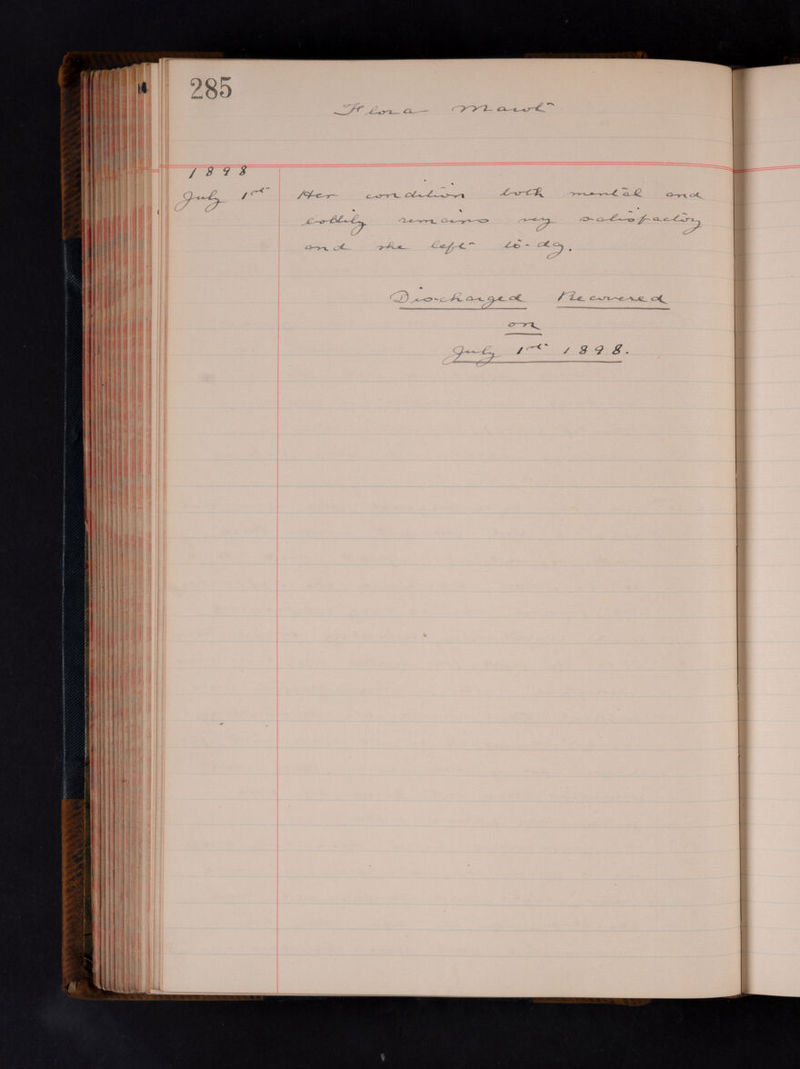 285
Flora
1898
July 1st Her condition both mental and
bodily remains very satisfactory
and she left to-day.
Discharged Recovered
on
July 1st 1898.